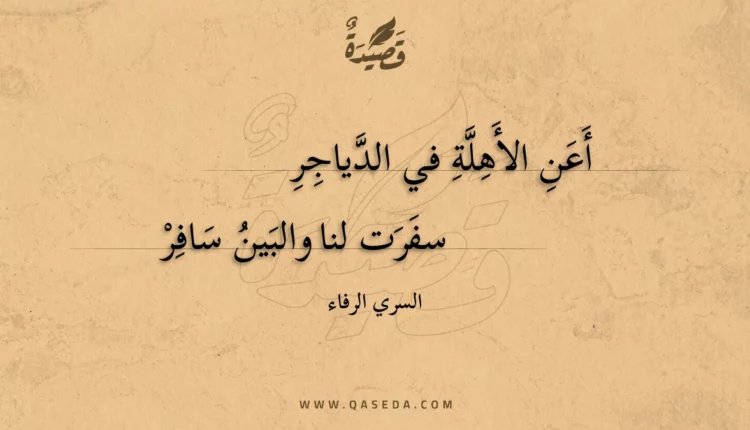 قَصِيْدَةٌ
أَعَنِ الأَهِلَّةِ في الدَّياجِرِ
سفَرَت لنا والبَينُ سَافِرْ
السري الرفاء
WWW.QASEDA.COM